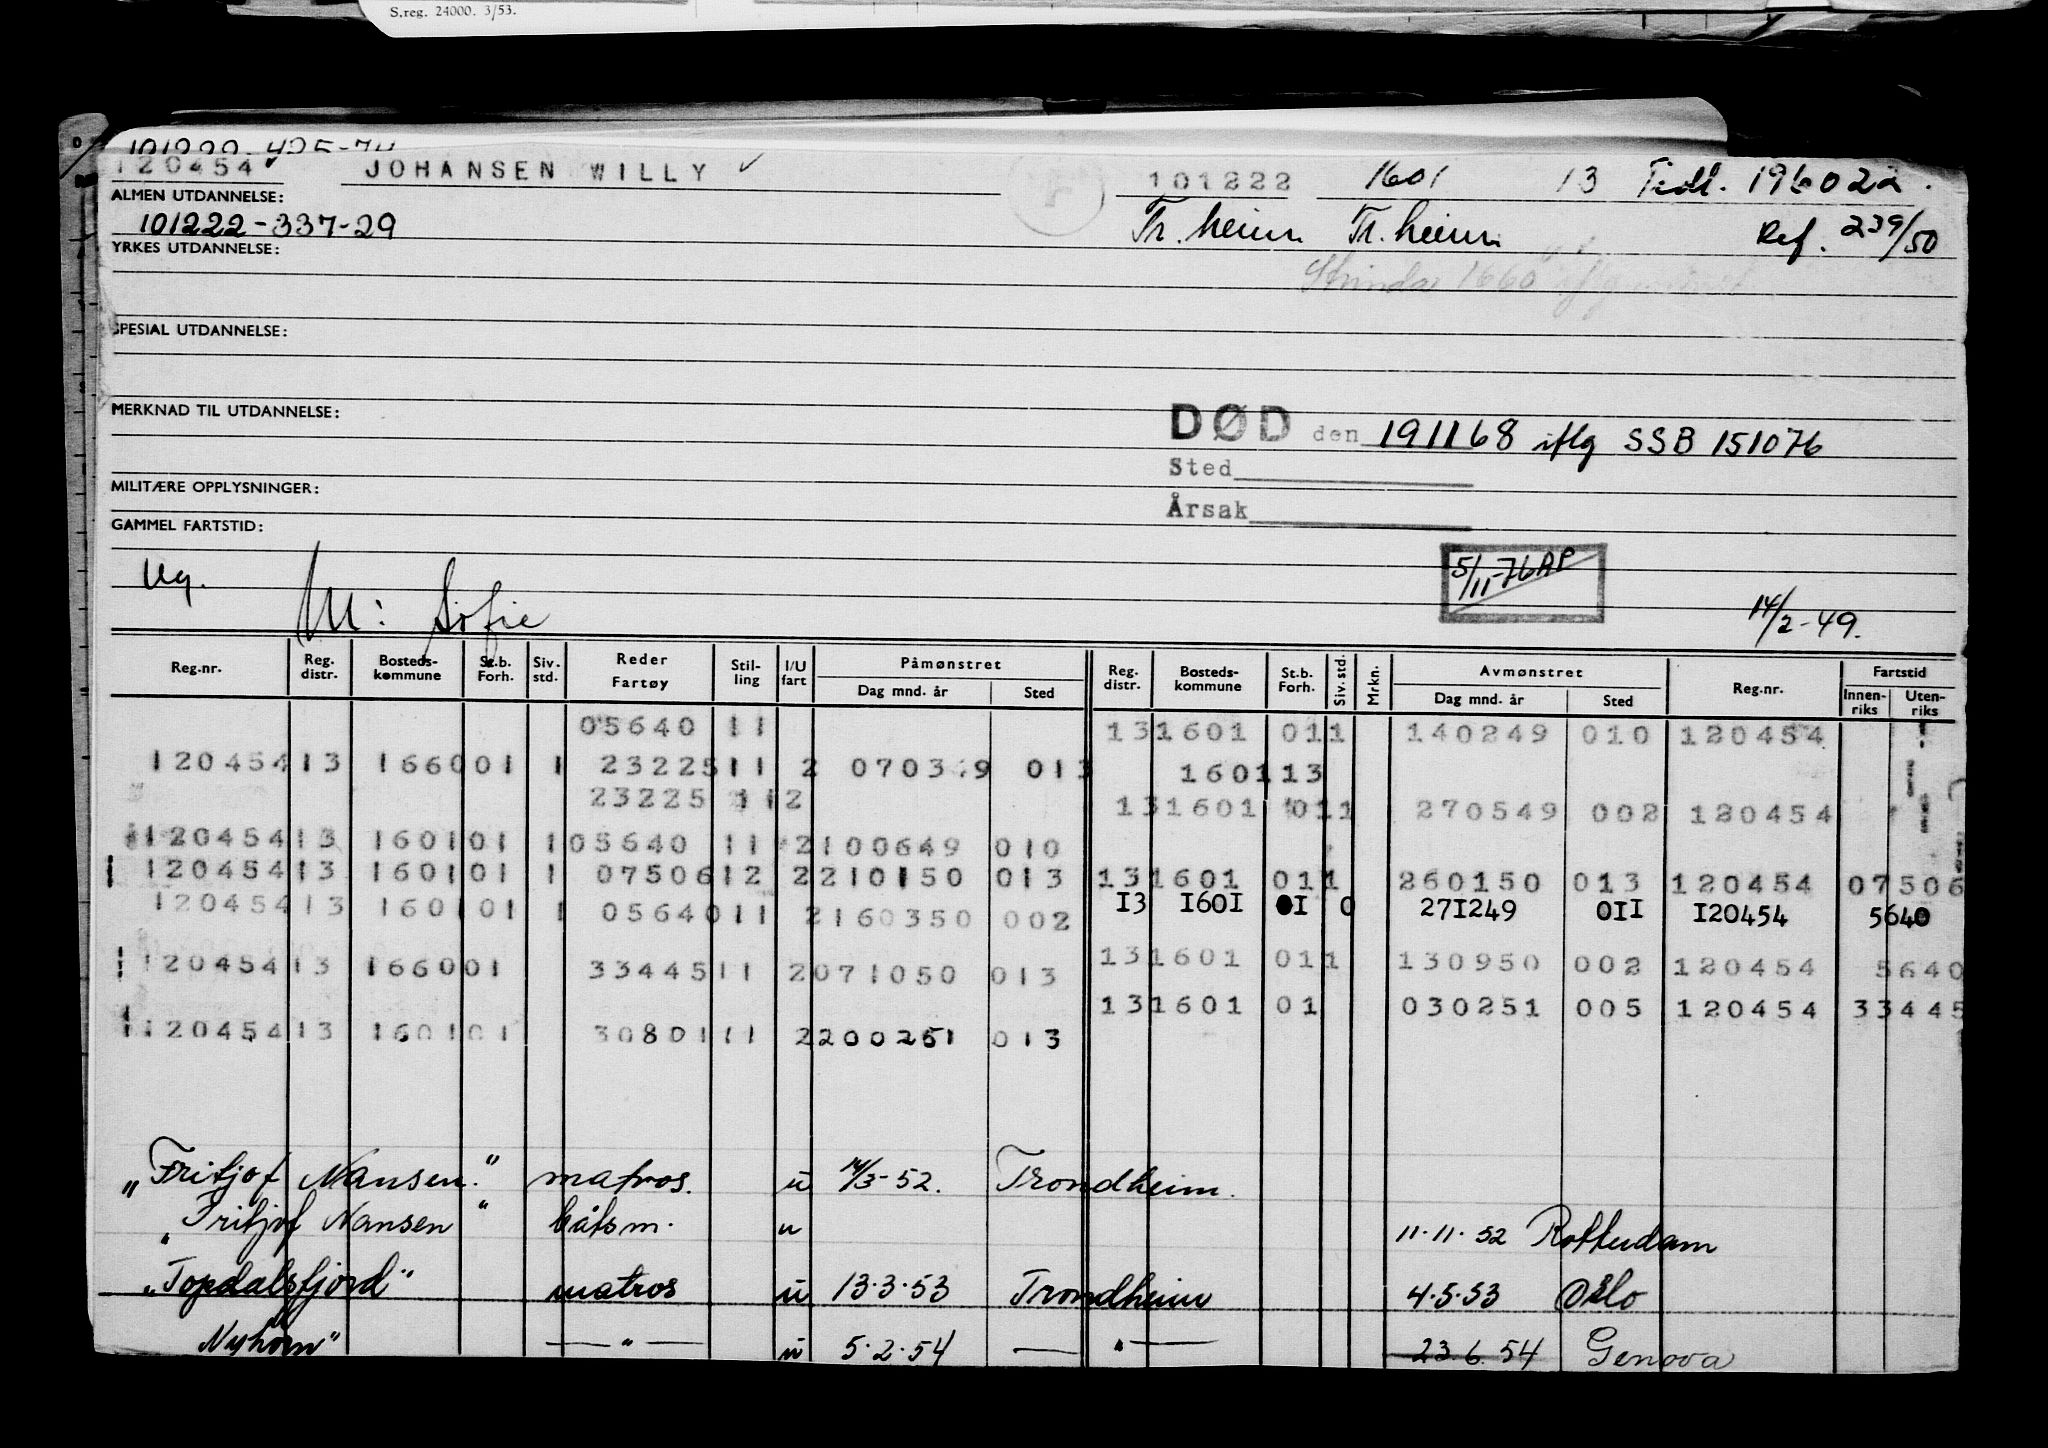 S.reg. 24000. 3/53.
120454 JOHANSEN WILLY 101222 1601 13 Tidl. 196022.
ALMEN UTDANNELSE:
101222-337-29 Tr.heim Tr.heim Ref. 239/50
YRKES UTDANNELSE:
Strinda 1660
SPESIAL UTDANNELSE:
MERKNAD TIL UTDANNELSE:
DØD den 191168 iflg SSB 151076
Sted
MILITÆRE OPPLYSNINGER:
Årsak
GAMMEL FARTSTID:
Ug. M: Sofie 5/11-76 AP 14/2-49.
Reg.nr. Reg. distr. Bosteds-kommune St.b. Forh. Siv. std. Reder Fartøy Stil-ling I/U fart Påmønstret Dag mnd. år Sted Reg. distr. Bosteds-kommune St.b. Forh. Siv. std. Mrkn. Avmønstret Dag mnd. år Sted Reg.nr. Fartstid Innen-riks Uten-riks
05640 11 13 1601 01 1 140249 010 120454
120454 13 1660 01 1 23225 11 2 070349 013 1601 13
23225 11 2 13 1601 01 1 270549 002 120454
120454 13 1601 01 1 05640 11 2 100649 010
120454 13 1601 01 1 07506 12 2 210150 013 13 1601 01 1 260150 013 120454 07506
120454 13 1601 01 1 05640 11 2 160350 002 I3 I60I 0I 0 27I249 0II I20454 5640
120454 13 1660 01 33445 11 2 071050 013 13 1601 01 1 130950 002 120454 5640
13 1601 01 030251 005 120454 33445
120454 13 1601 01 30801 11 2 200251 013
"Fritjof Nansen." matros. u 14/3-52. Trondheim.
"Fritjof Nansen" båtsm. u 11.11.52 Rotterdam
"Topdalsfjord" matros u 13.3.53 Trondheim 4.5.53 Oslo
"Nyhorn" — " — u 5.2.54 — " — 23.6.54 Genova